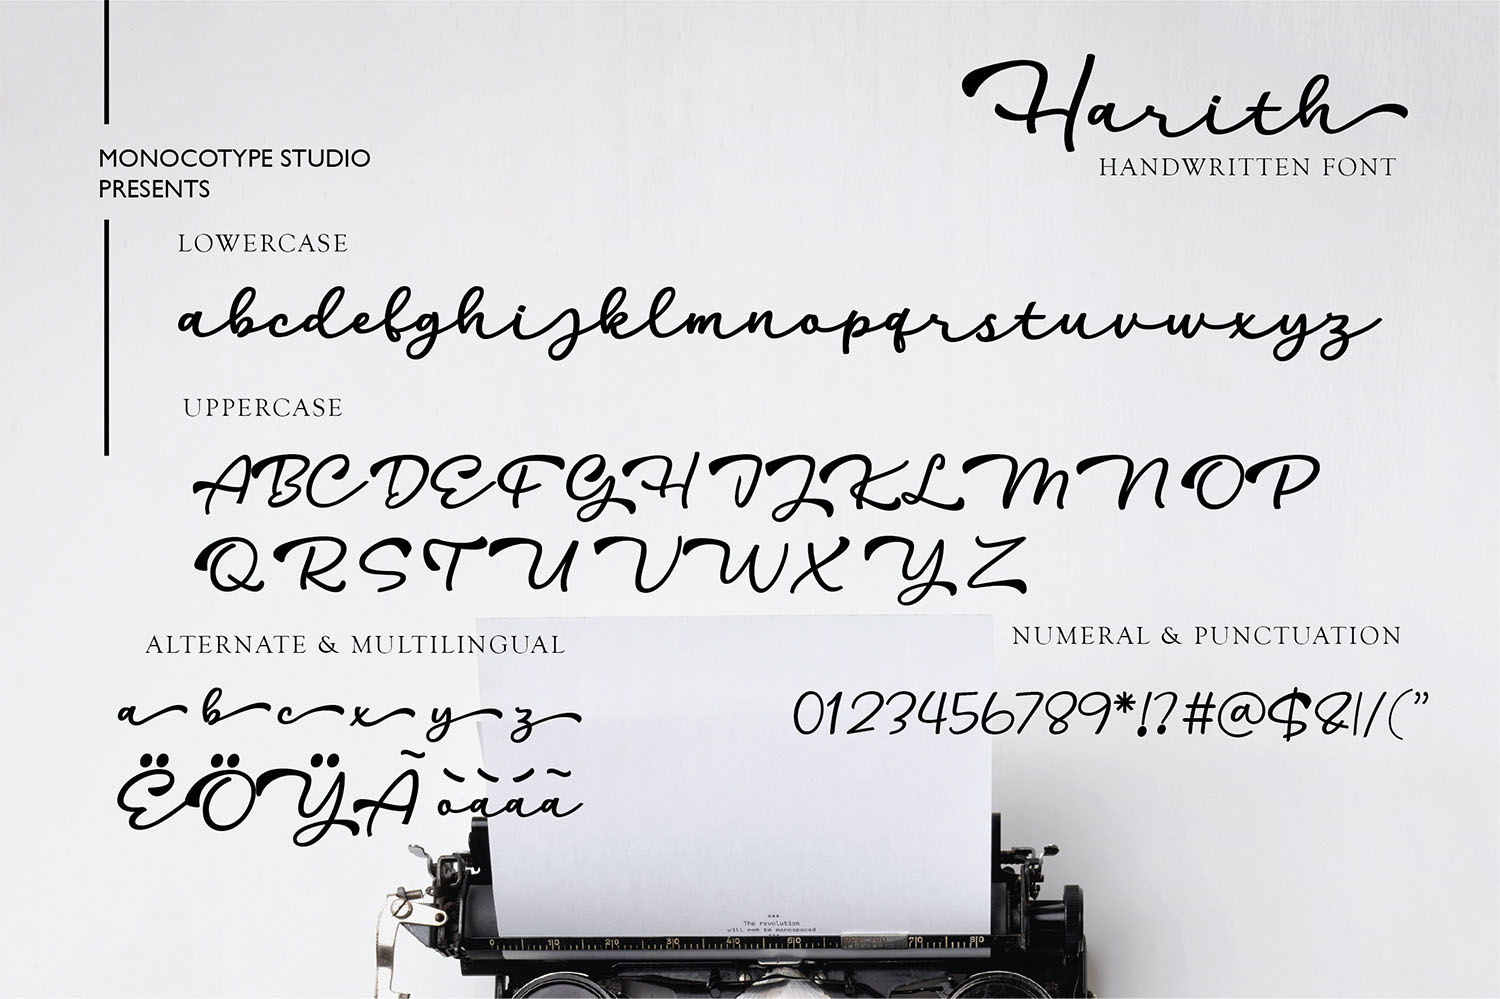 MONOCOTYPE STUDIO
PRESENTS
Harith
HANDWRITTEN FONT
LOWERCASE
abcdefghijklmnopqrstuvwxyz
UPPERCASE
ABCDEFGHIJKLMNOP
QRSTUVWXYZ
ALTERNATE & MULTILINGUAL
a b c x y z
ËÖŸÃ òàáã
NUMERAL & PUNCTUATION
0123456789*!?#@$&|/("
***
The revolution
will not be monospaced
***
0 10 20 30 40 50 70 80